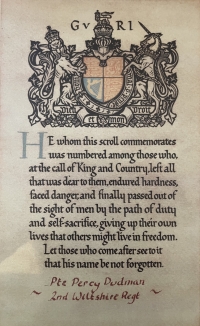 G V R I
DIEU ET MON DROIT
HE whom this scroll commemorates
was numbered among those who,
at the call of King and Country, left all
that was dear to them, endured hardness,
faced danger, and finally passed out of
the sight of men by the path of duty
and self-sacrifice, giving up their own
lives that others might live in freedom.
Let those who come after see to it
that his name be not forgotten.
Pte Percy Dudman
2nd Wiltshire Regt